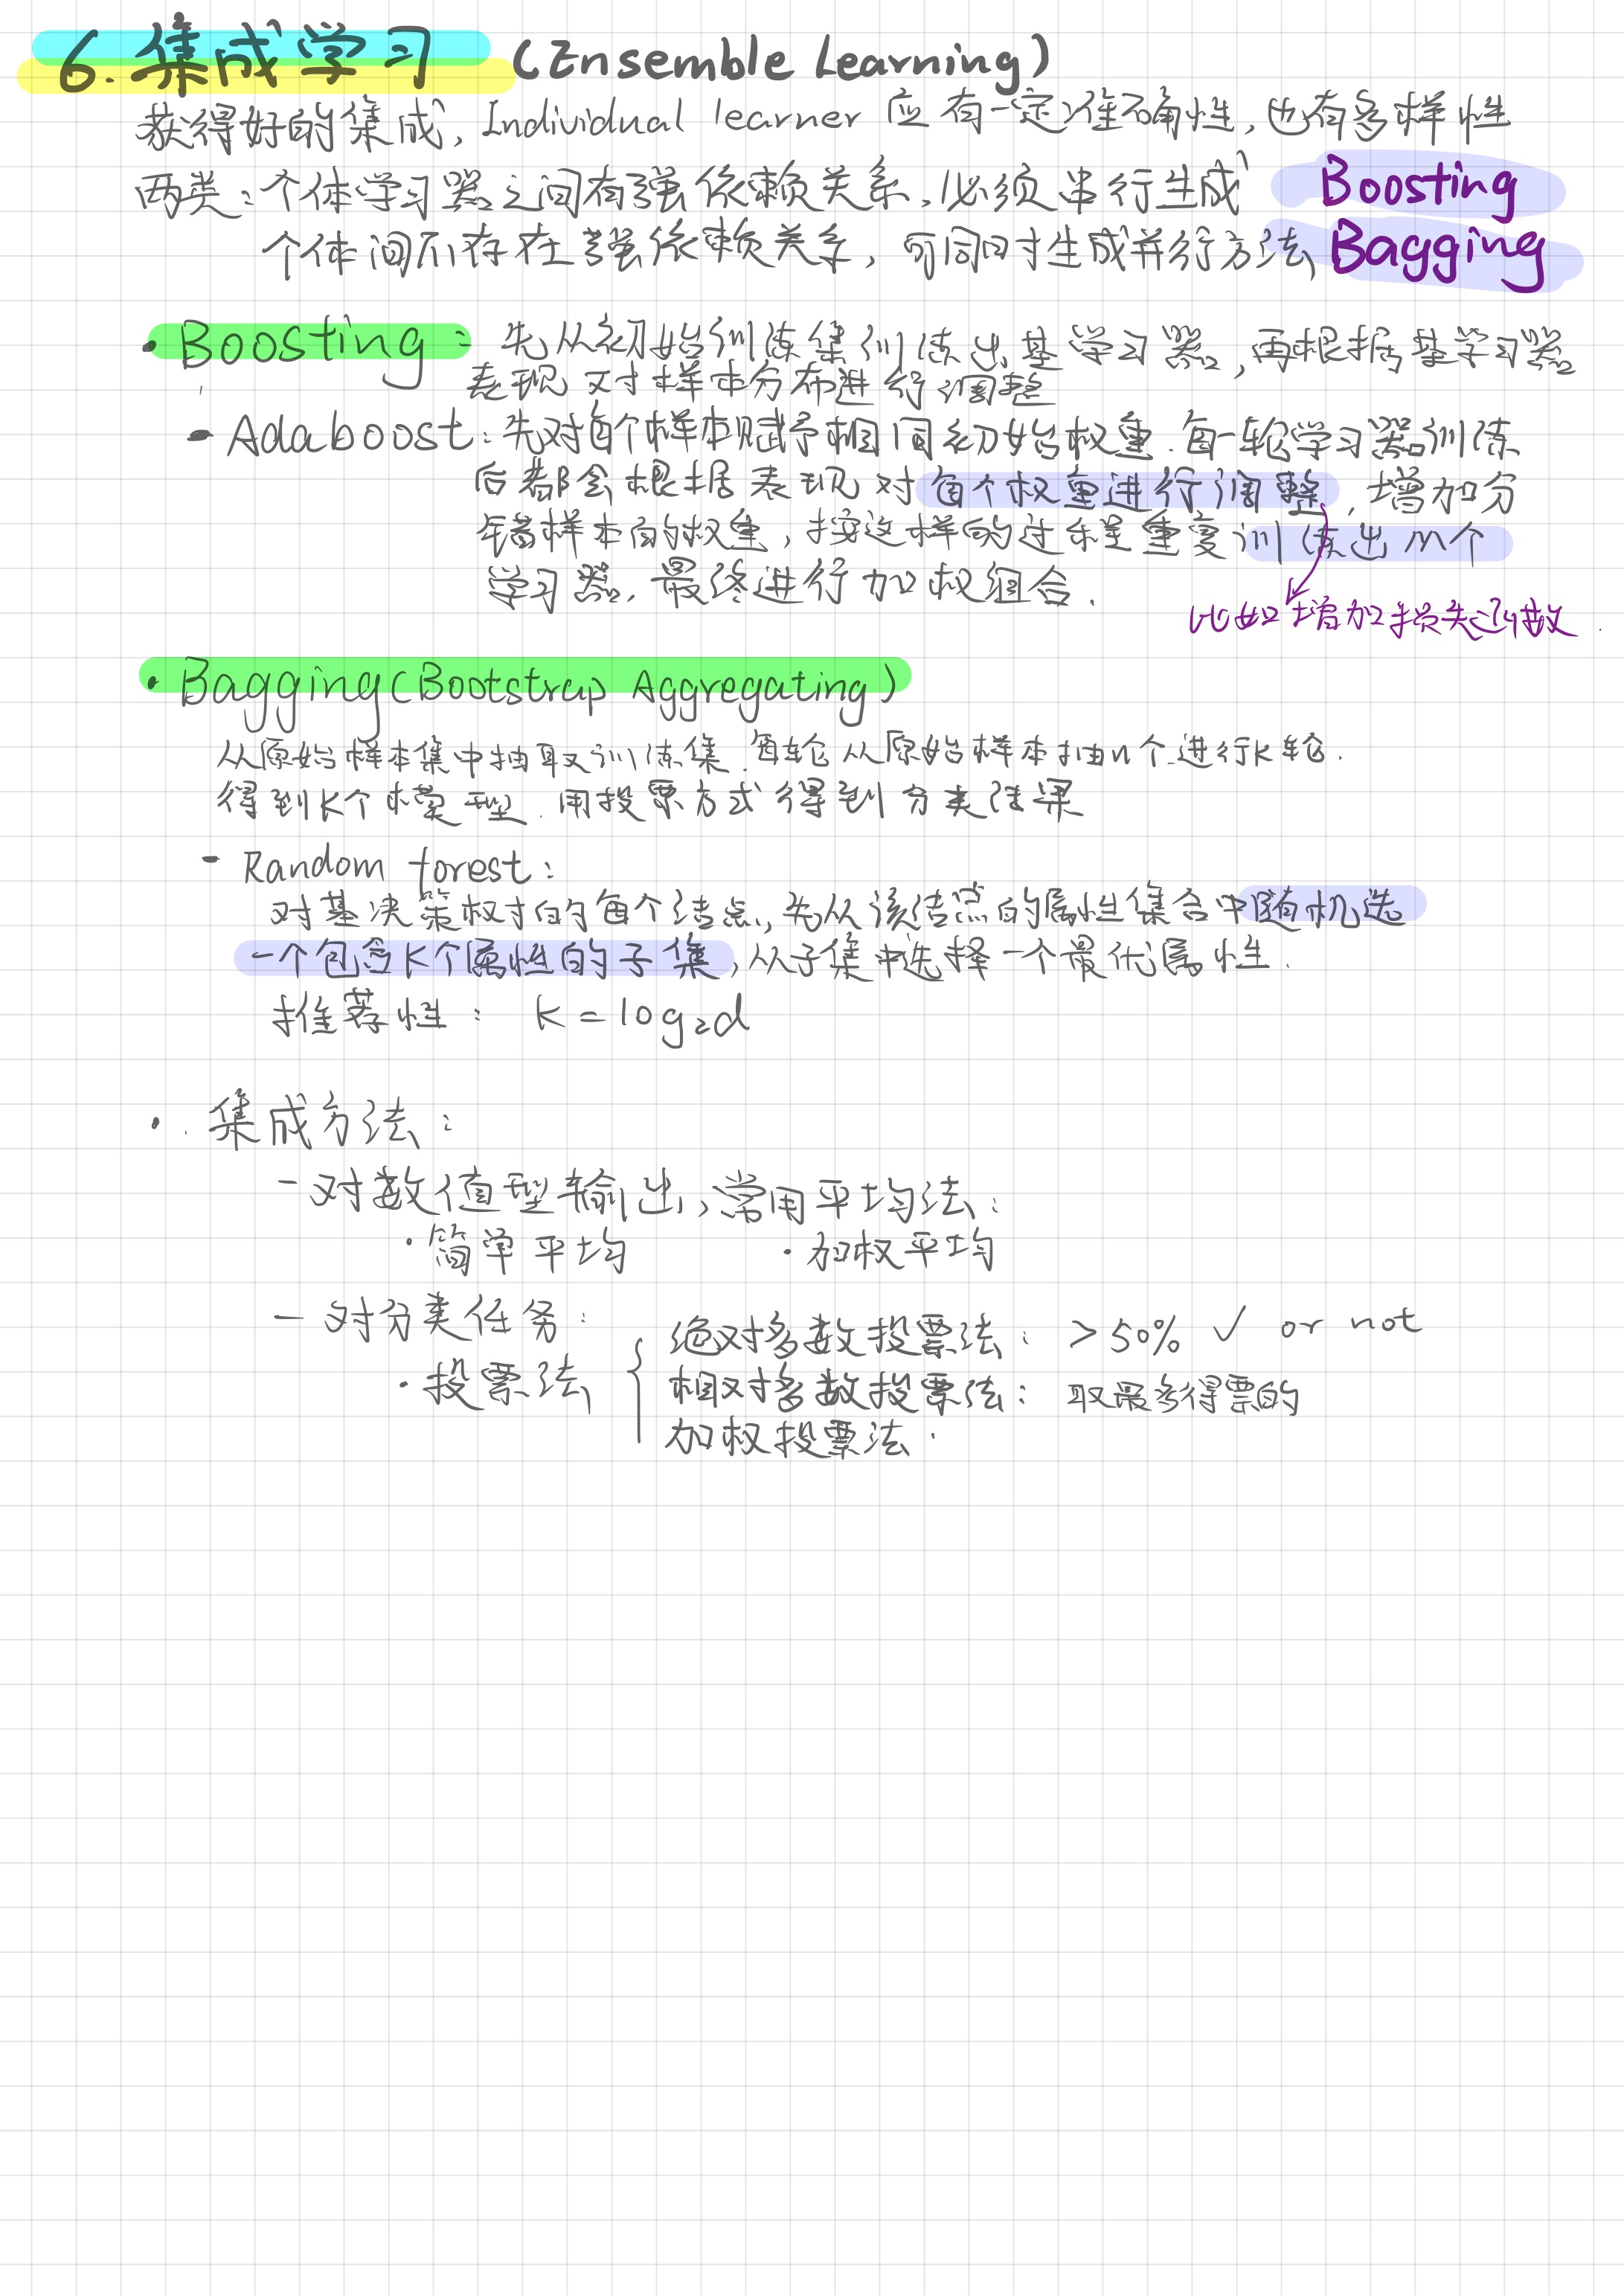 6. 集成学习 (Ensemble Learning)
获得好的集成, Individual learner 应有一定准确性, 也有多样性
两类: 个体学习器之间有强依赖关系, 必须串行生成 Boosting
个体间不存在强依赖关系, 可同时生成并行方法 Bagging
· Boosting: 先从初始训练集训练出基学习器, 再根据基学习器
表现对样本分布进行调整
- Adaboost: 先对每个样本赋予相同初始权重. 每一轮学习器训练
后都会根据表现对每个权重进行调整, 增加分
错样本的权重, 按这样的过程重复训练出 m个
学习器, 最终进行加权组合.
比如增加损失函数
· Bagging (Bootstrap Aggregating)
从原始样本集中抽取训练集. 每轮从原始样本抽n个 进行K轮.
得到K个模型. 用投票方式得到分类结果
- Random forest:
对基决策树的每个结点, 先从该结点的属性集合中随机选
一个包含K个属性的子集, 从子集中选择一个最优属性.
推荐性: K = log₂d
· 集成方法:
- 对数值型输出, 常用平均法:
· 简单平均 · 加权平均
- 对分类任务:
绝对多数投票法: >50% ✓ or not
· 投票法 { 相对多数投票法: 取最多得票的
加权投票法.